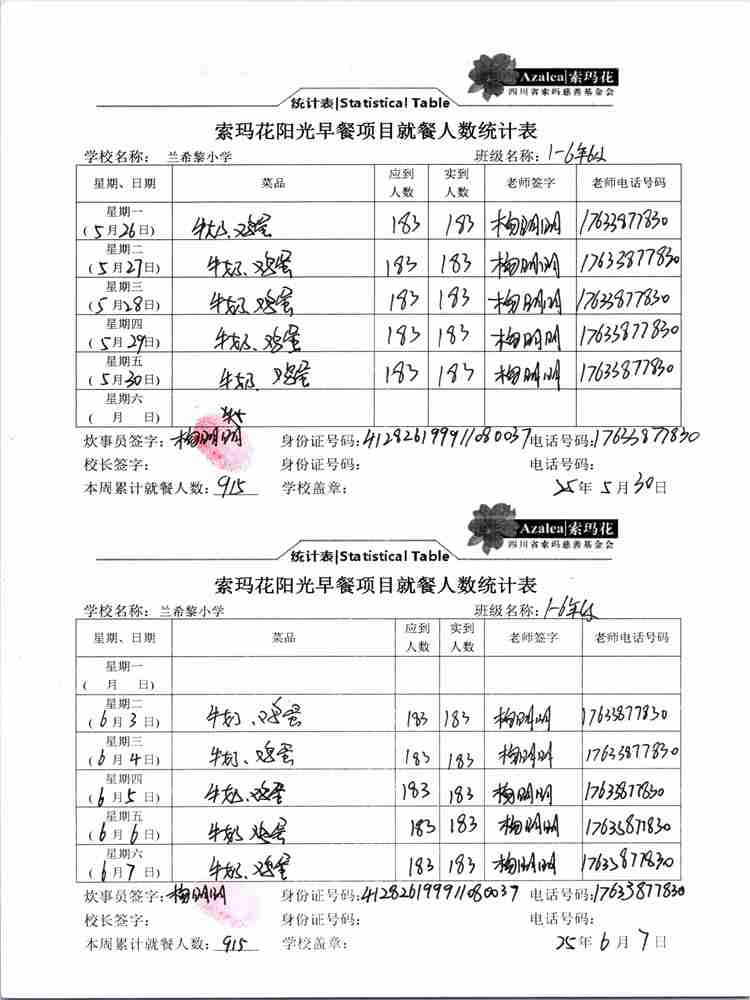 Azalea|索玛花
四川省索玛慈善基金会
统计表|Statistical Table
索玛花阳光早餐项目就餐人数统计表
学校名称： 兰希黎小学 班级名称：1-6年级
星期、日期 菜品 应到人数 实到人数 老师签字 老师电话号码
星期一 (5月26日) 牛奶、鸡蛋 183 183 梅明明 17633877830
星期二 (5月27日) 牛奶、鸡蛋 183 183 梅明明 17633877830
星期三 (5月28日) 牛奶、鸡蛋 183 183 梅明明 17633877830
星期四 (5月29日) 牛奶、鸡蛋 183 183 梅明明 17633877830
星期五 (5月30日) 牛奶、鸡蛋 183 183 梅明明 17633877830
星期六 ( 月 日)
炊事员签字：梅明明 身份证号码：412826199911080037 电话号码：17633877830
校长签字： 身份证号码： 电话号码：
本周累计就餐人数：915 学校盖章： 25年5月30日
Azalea|索玛花
四川省索玛慈善基金会
统计表|Statistical Table
索玛花阳光早餐项目就餐人数统计表
学校名称： 兰希黎小学 班级名称：1-6年级
星期、日期 菜品 应到人数 实到人数 老师签字 老师电话号码
星期一 ( 月 日)
星期二 (6月3日) 牛奶、鸡蛋 183 183 梅明明 17633877830
星期三 (6月4日) 牛奶、鸡蛋 183 183 梅明明 17633877830
星期四 (6月5日) 牛奶、鸡蛋 183 183 梅明明 17633877830
星期五 (6月6日) 牛奶 鸡蛋 183 183 梅明明 17633877830
星期六 (6月7日) 牛奶、鸡蛋 183 183 梅明明 17633877830
炊事员签字：梅明明 身份证号码：412826199911080037 电话号码：17633877830
校长签字： 身份证号码： 电话号码：
本周累计就餐人数：915 学校盖章： 25年6月7日